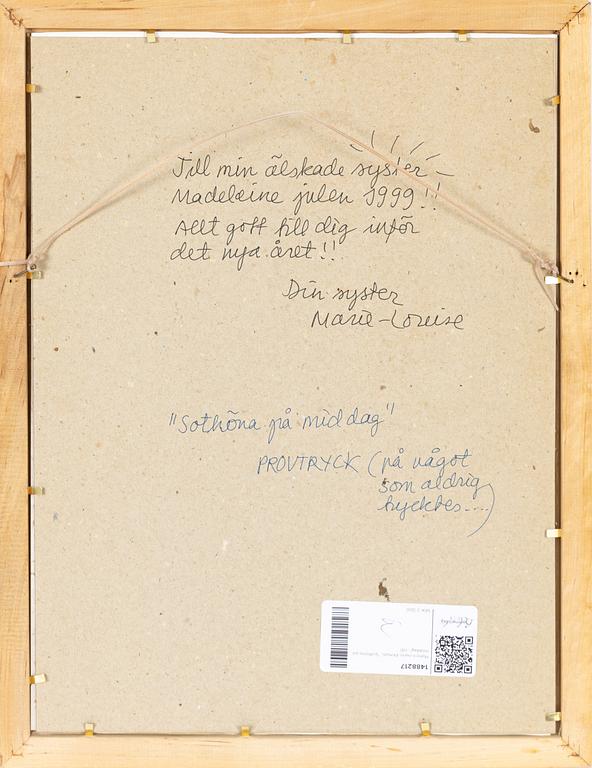 Till min älskade syster –
Madeleine julen 1999!!
Allt gott till dig inför
det nya året!!
Din syster
Marie-Louise
"Sothöna på middag"
PROVTRYCK (på något
som aldrig
trycktes....)
1488217